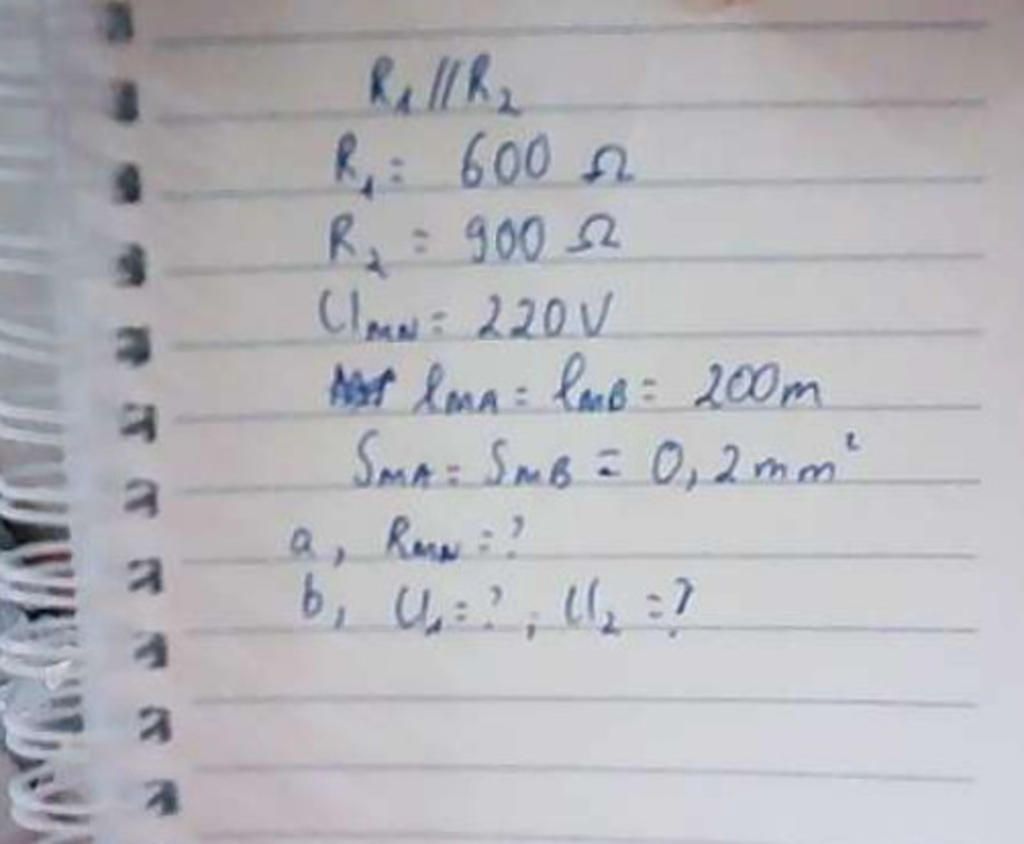 R₁//R₂
R₁ = 600 Ω
R₂ = 900 Ω
UMN = 220V
lMA = lMB = 200m
SMA = SMB = 0,2mm²
a, RMN = ?
b, U₁ = ? ; U₂ = ?